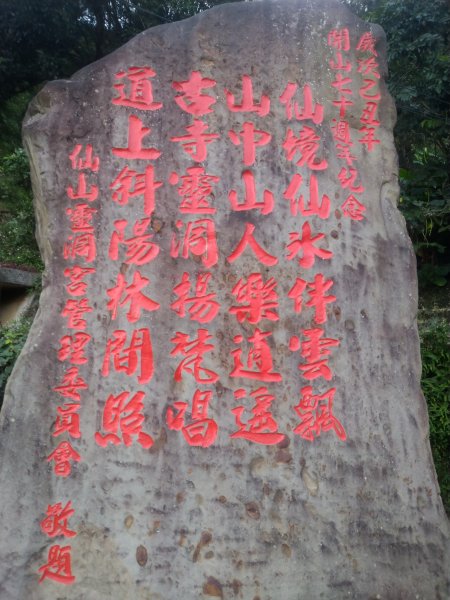 歲次乙丑年
開山七十週年紀念
仙境仙水伴雲飄
山中山人樂逍遙
古寺靈洞揚梵唱
道上斜陽林間照
仙山靈洞宮管理委員會 敬題